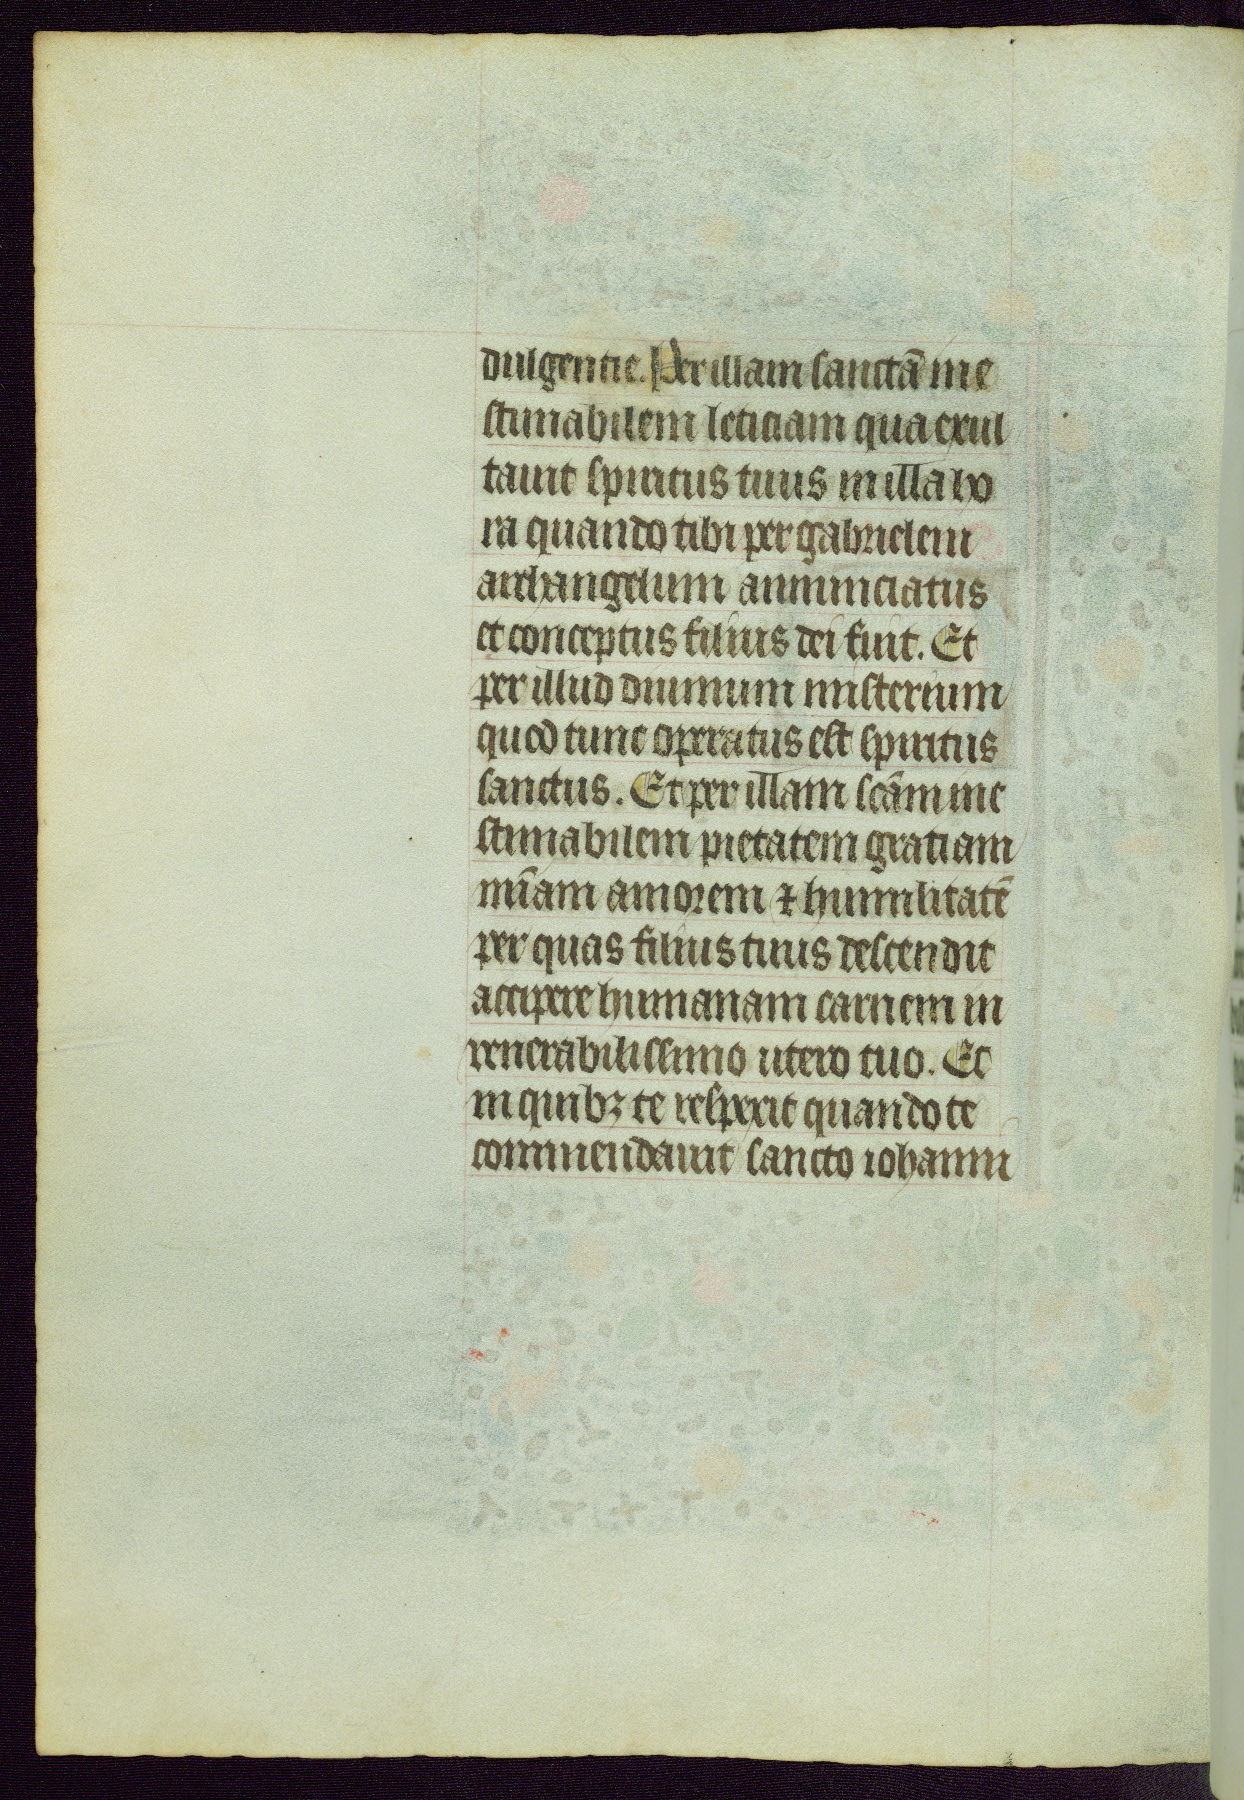 dulgentie. Per illam sanctā ine
stimabilem leticiam qua exul
tauit spiritus tuus in illa ho
ra quando tibi per gabrielem
archangelum annunciatus
et conceptus filius dei fuit. Et
per illud diuinum misterium
quod tunc operatus est spiritus
sanctus. Et per illam scām ine
stimabilem pietatem gratiam
mīam amorem ⁊ humilitatē
per quas filius tuus descendit
accipere humanam carnem in
venerabilissimo utero tuo. Et
in quibꝫ te respexit quando te
commendauit sancto iohanni